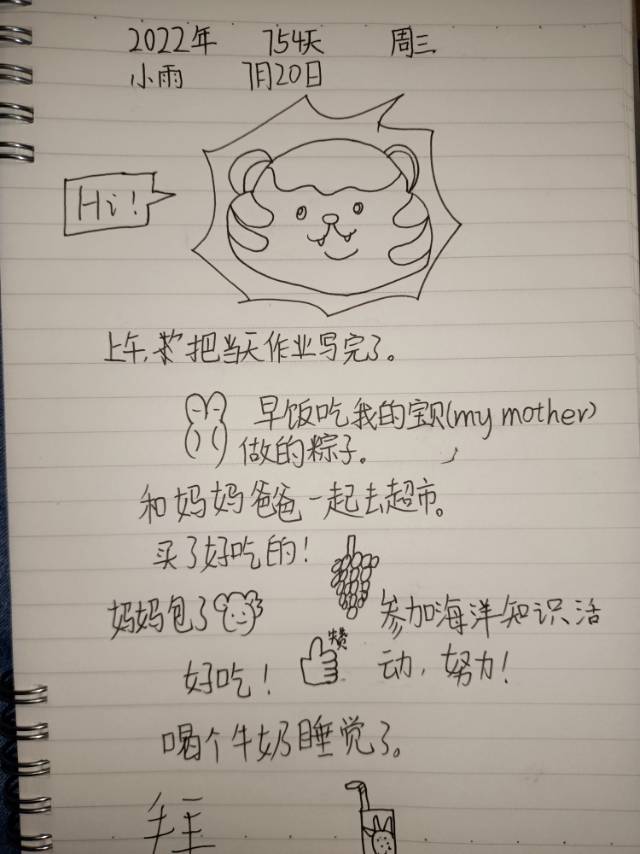 2022年 754天 周三
小雨 7月20日
Hi!
上午,把当天作业写完了。
早饭吃我的宝贝(my mother)
做的粽子。
和妈妈爸爸一起去超市。
买了好吃的!
妈妈包了
参加海洋知识活
好吃! 赞 动,努力!
喝个牛奶睡觉了。